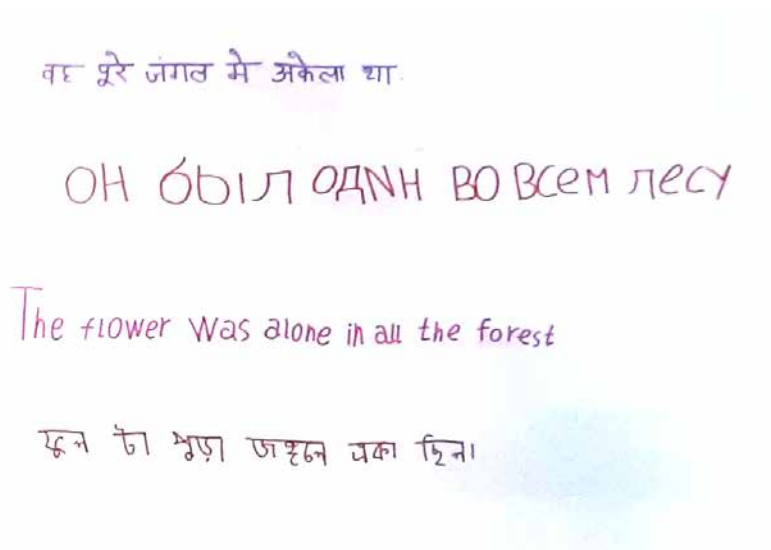 वह पूरे जंगल मे अकेला था.
ОН был ОДИН ВО ВСеМ лесУ
The flower was alone in all the forest
ফুল টা পুড়া জঙ্গলে একা ছিল।